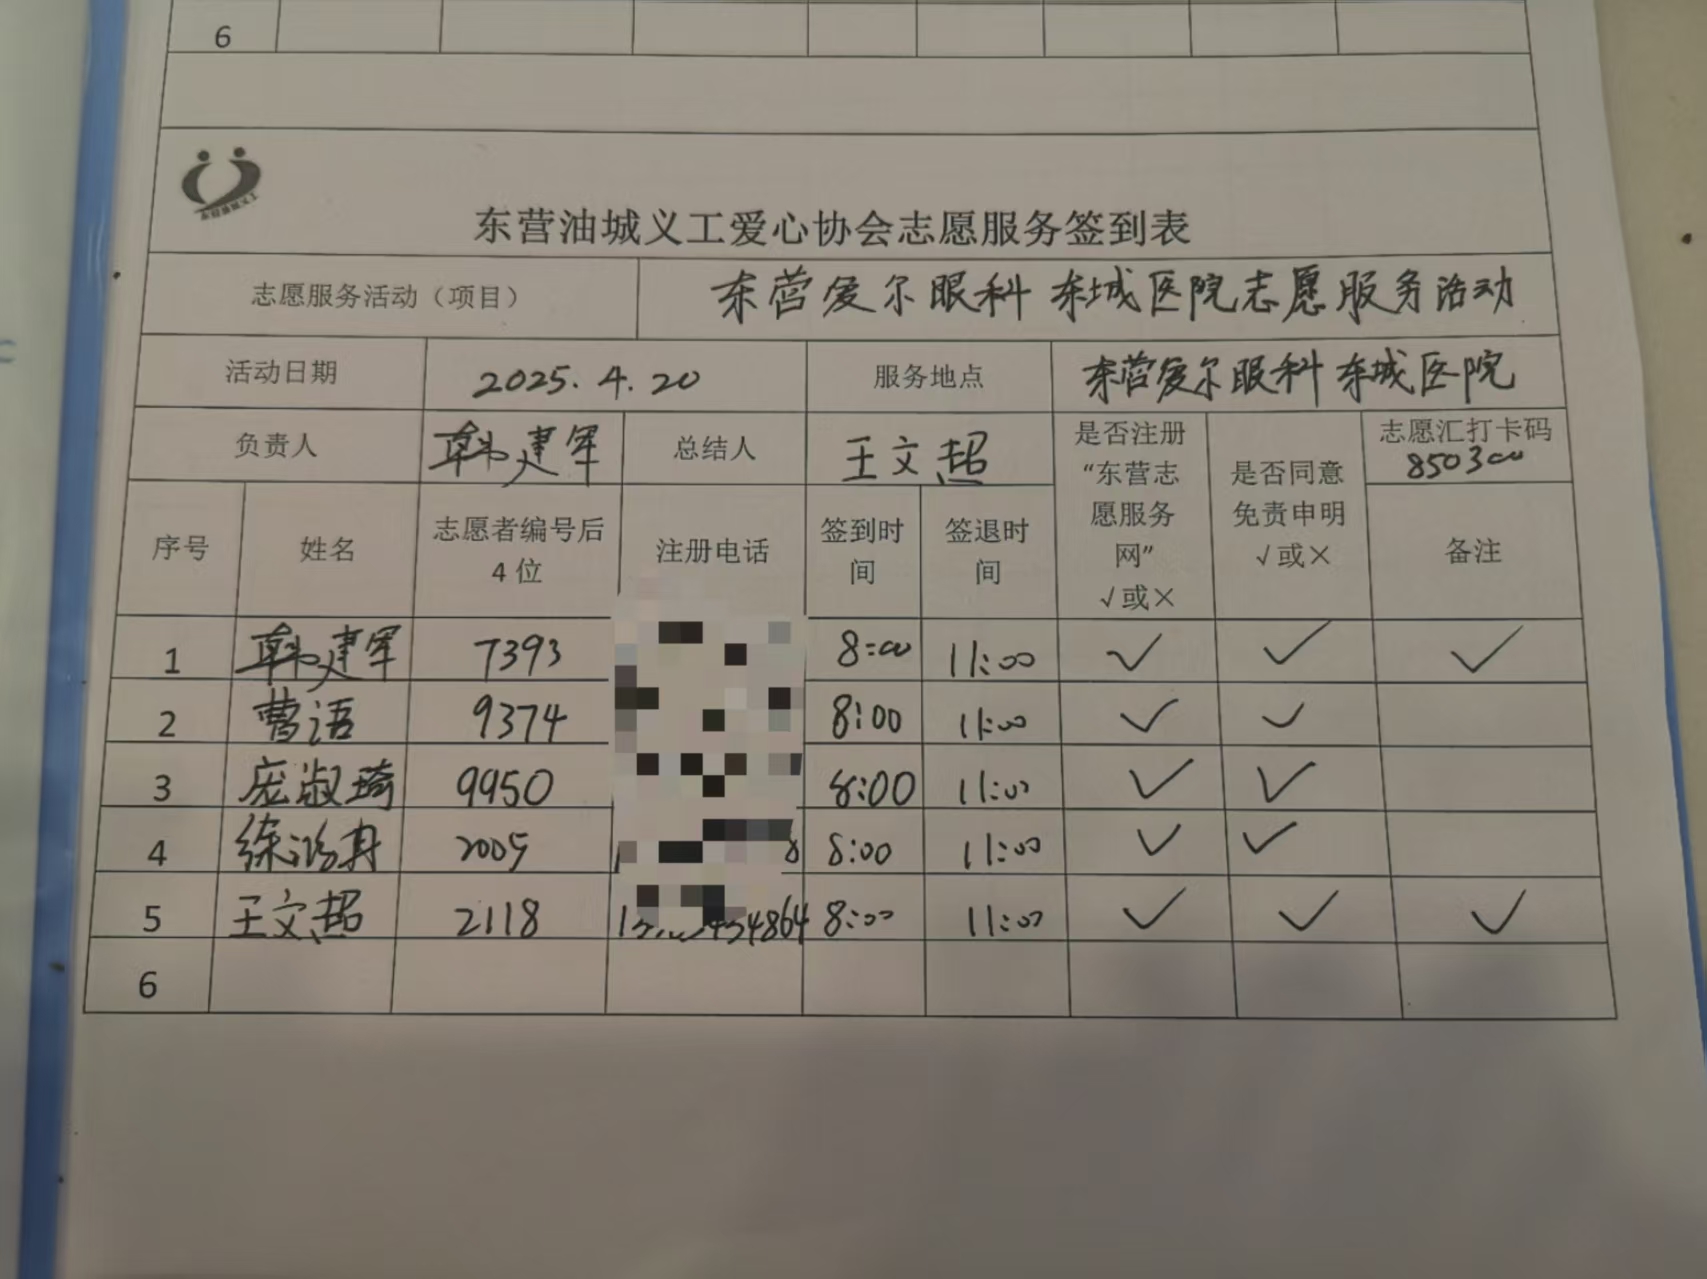 6
东营油城义工
东营油城义工爱心协会志愿服务签到表
志愿服务活动（项目） 东营爱尔眼科东城医院志愿服务活动
活动日期 2025.4.20 服务地点 东营爱尔眼科东城医院
负责人 韩建军 总结人 王文超 是否注册“东营志愿服务网”√或× 是否同意免责申明√或× 志愿汇打卡码 850300
序号 姓名 志愿者编号后4位 注册电话 签到时间 签退时间 备注
1 韩建军 7393 8:00 11:00 ✓ ✓ ✓
2 曹语 9374 8:00 11:00 ✓ ✓
3 庞淑琦 9950 8:00 11:00 ✓ ✓
4 2005 8 8:00 11:00 ✓ ✓
5 王文超 2118 4864 8:00 11:00 ✓ ✓ ✓
6